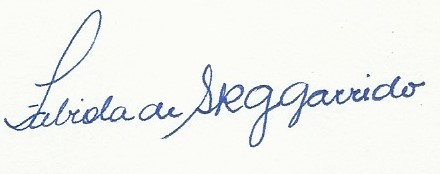 Fabiola de SRG Garrido